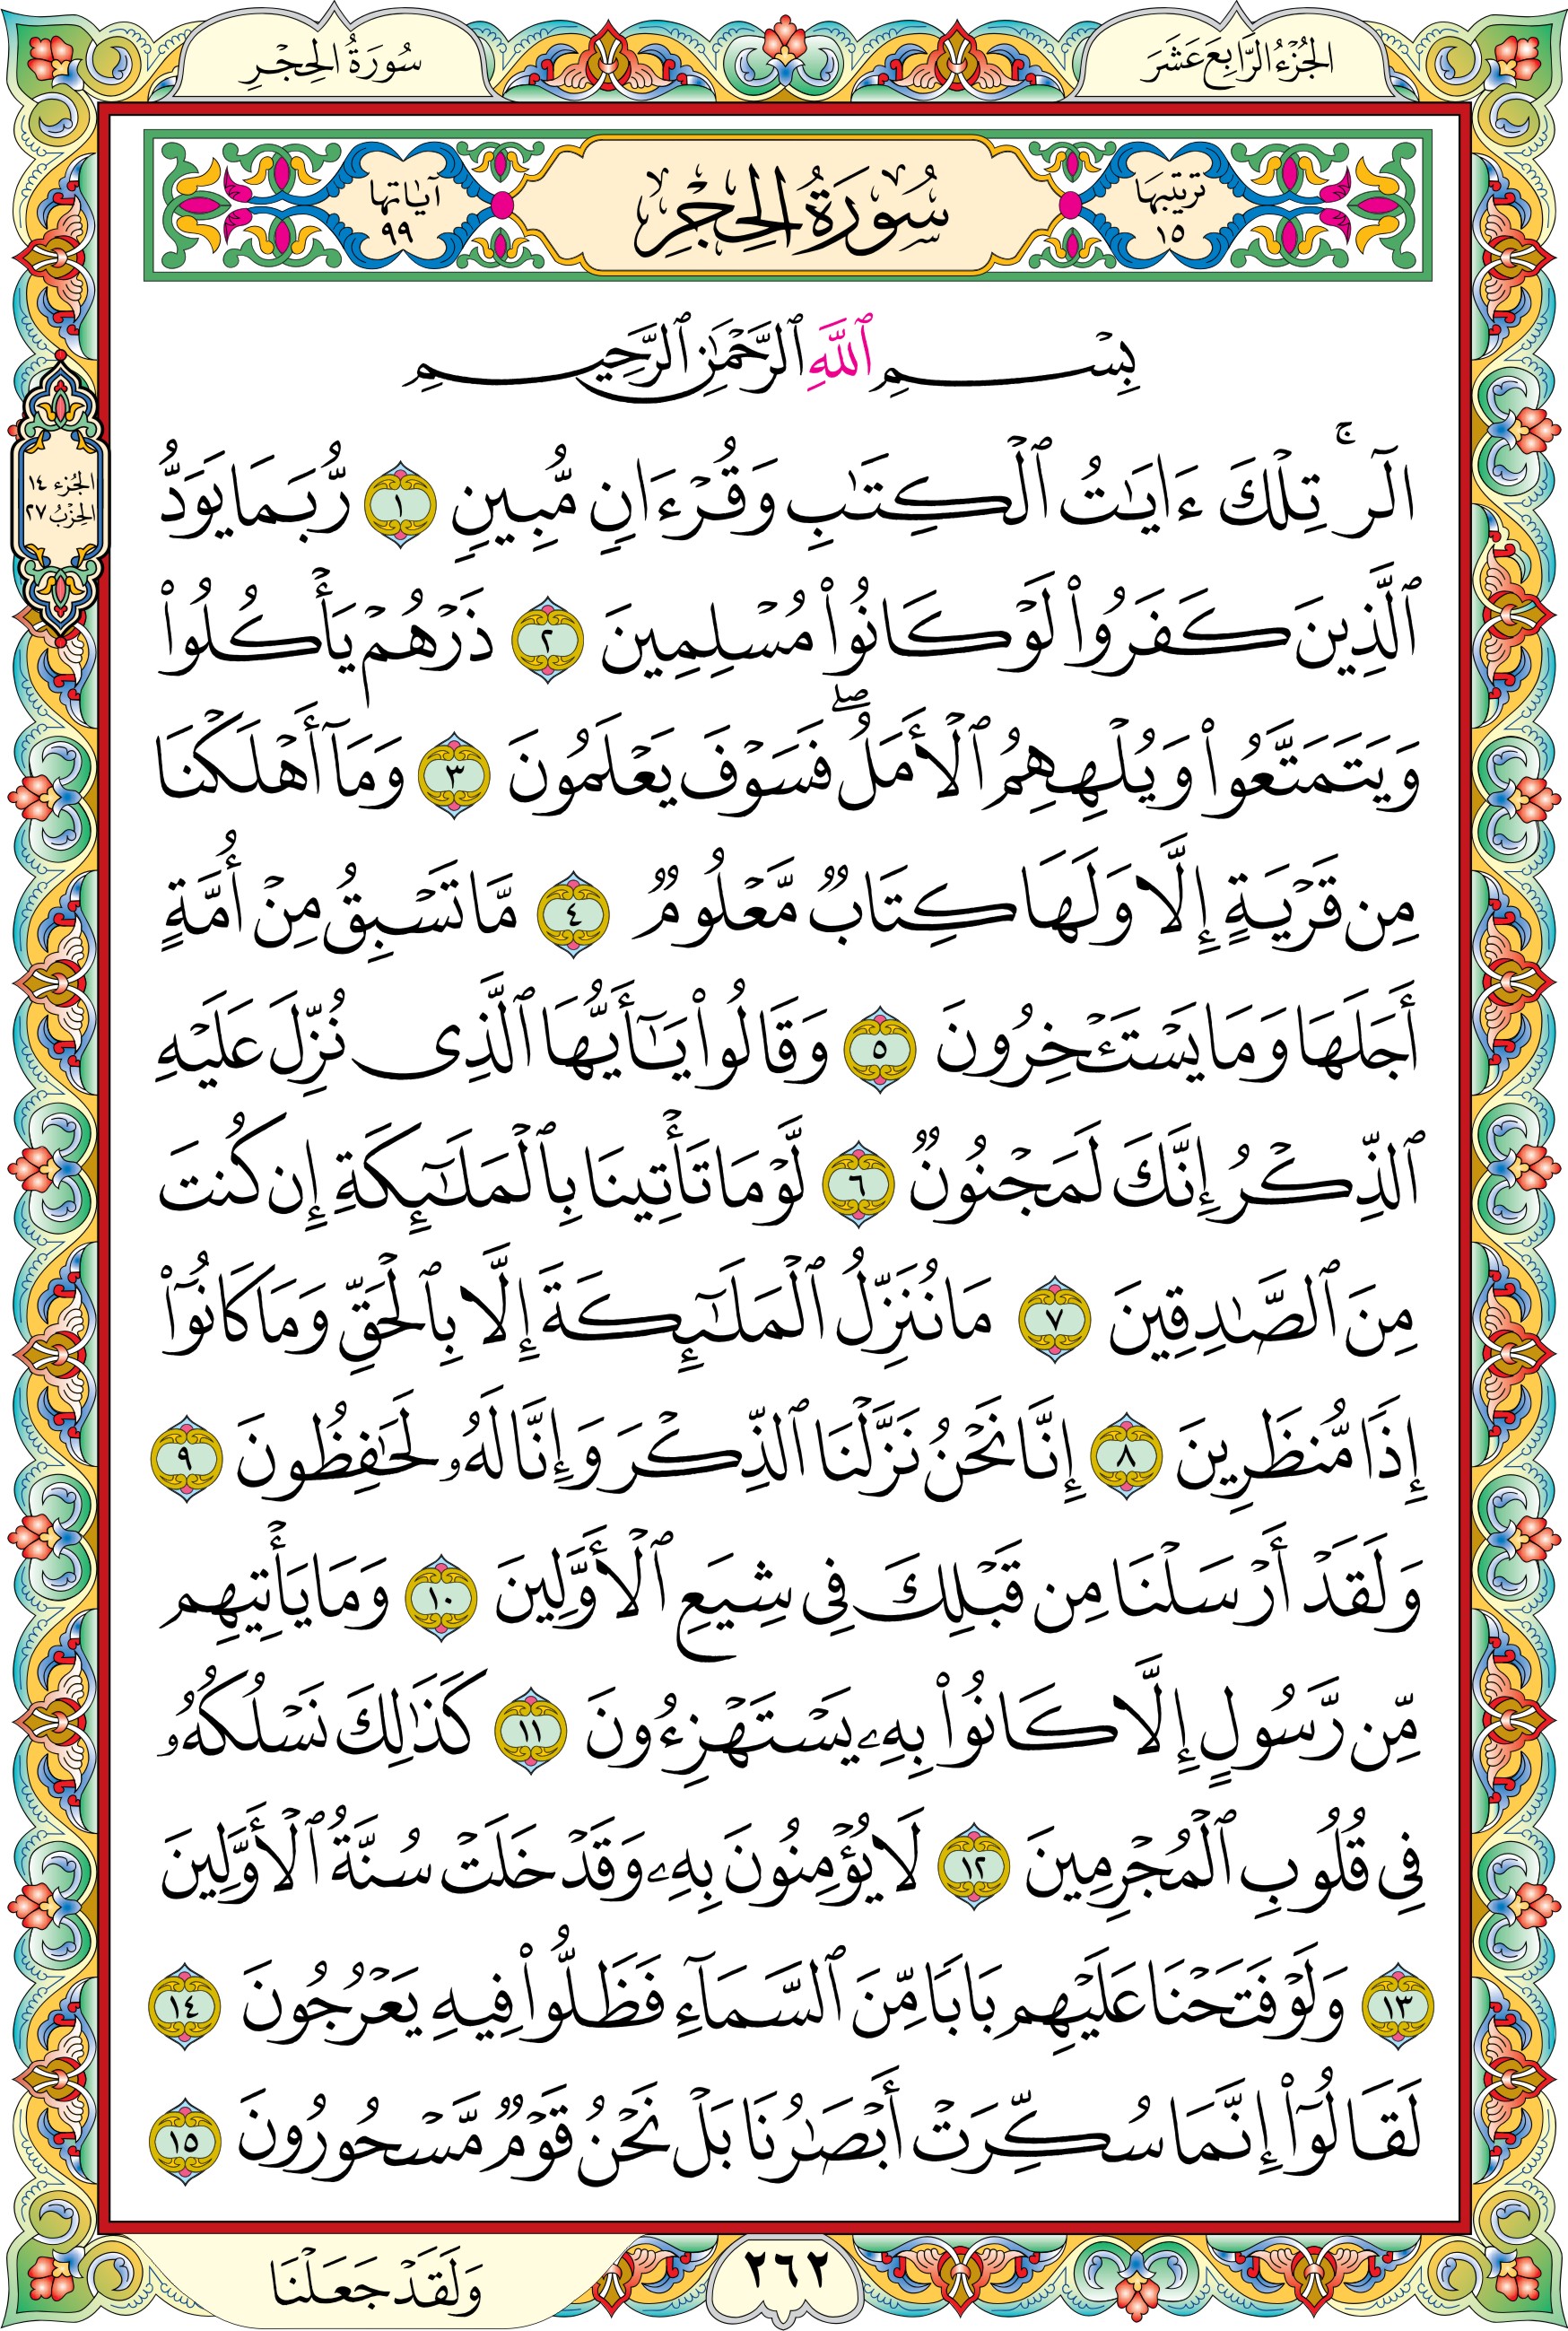 الجُزْءُ الرَّابِعَ عَشَرَ
سُورَةُ الحِجْرِ
ترتيبها
١٥
سُورَةُ الحِجْرِ
آياتها
٩٩
بِسْمِ ٱللَّهِ ٱلرَّحْمَٰنِ ٱلرَّحِيمِ
الٓرۚ تِلْكَ ءَايَٰتُ ٱلْكِتَٰبِ وَقُرْءَانٍ مُّبِينٍ ١ رُّبَمَا يَوَدُّ
ٱلَّذِينَ كَفَرُوا۟ لَوْ كَانُوا۟ مُسْلِمِينَ ٢ ذَرْهُمْ يَأْكُلُوا۟
وَيَتَمَتَّعُوا۟ وَيُلْهِهِمُ ٱلْأَمَلُۖ فَسَوْفَ يَعْلَمُونَ ٣ وَمَآ أَهْلَكْنَا
مِن قَرْيَةٍ إِلَّا وَلَهَا كِتَابٌ مَّعْلُومٌ ٤ مَّا تَسْبِقُ مِنْ أُمَّةٍ
أَجَلَهَا وَمَا يَسْتَـْٔخِرُونَ ٥ وَقَالُوا۟ يَٰٓأَيُّهَا ٱلَّذِى نُزِّلَ عَلَيْهِ
ٱلذِّكْرُ إِنَّكَ لَمَجْنُونٌ ٦ لَّوْ مَا تَأْتِينَا بِٱلْمَلَٰٓئِكَةِ إِن كُنتَ
مِنَ ٱلصَّٰدِقِينَ ٧ مَا نُنَزِّلُ ٱلْمَلَٰٓئِكَةَ إِلَّا بِٱلْحَقِّ وَمَا كَانُوٓا۟
إِذًا مُّنظَرِينَ ٨ إِنَّا نَحْنُ نَزَّلْنَا ٱلذِّكْرَ وَإِنَّا لَهُۥ لَحَٰفِظُونَ ٩
وَلَقَدْ أَرْسَلْنَا مِن قَبْلِكَ فِى شِيَعِ ٱلْأَوَّلِينَ ١٠ وَمَا يَأْتِيهِم
مِّن رَّسُولٍ إِلَّا كَانُوا۟ بِهِۦ يَسْتَهْزِءُونَ ١١ كَذَٰلِكَ نَسْلُكُهُۥ
فِى قُلُوبِ ٱلْمُجْرِمِينَ ١٢ لَا يُؤْمِنُونَ بِهِۦ وَقَدْ خَلَتْ سُنَّةُ ٱلْأَوَّلِينَ
١٣ وَلَوْ فَتَحْنَا عَلَيْهِم بَابًا مِّنَ ٱلسَّمَآءِ فَظَلُّوا۟ فِيهِ يَعْرُجُونَ ١٤
لَقَالُوٓا۟ إِنَّمَا سُكِّرَتْ أَبْصَٰرُنَا بَلْ نَحْنُ قَوْمٌ مَّسْحُورُونَ ١٥
الجُزء ١٤
الحِزْبُ ٢٧
٢٦٢
وَلَقَدْ جَعَلْنَا